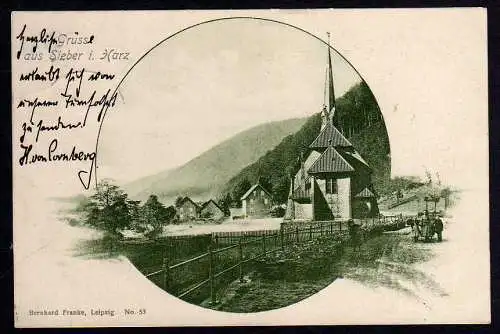 Herzliche Grüsse
aus Sieber i. Harz
erlaubt sich von
unserer
zu senden.
H. von
Bernhard Franke, Leipzig No. 53